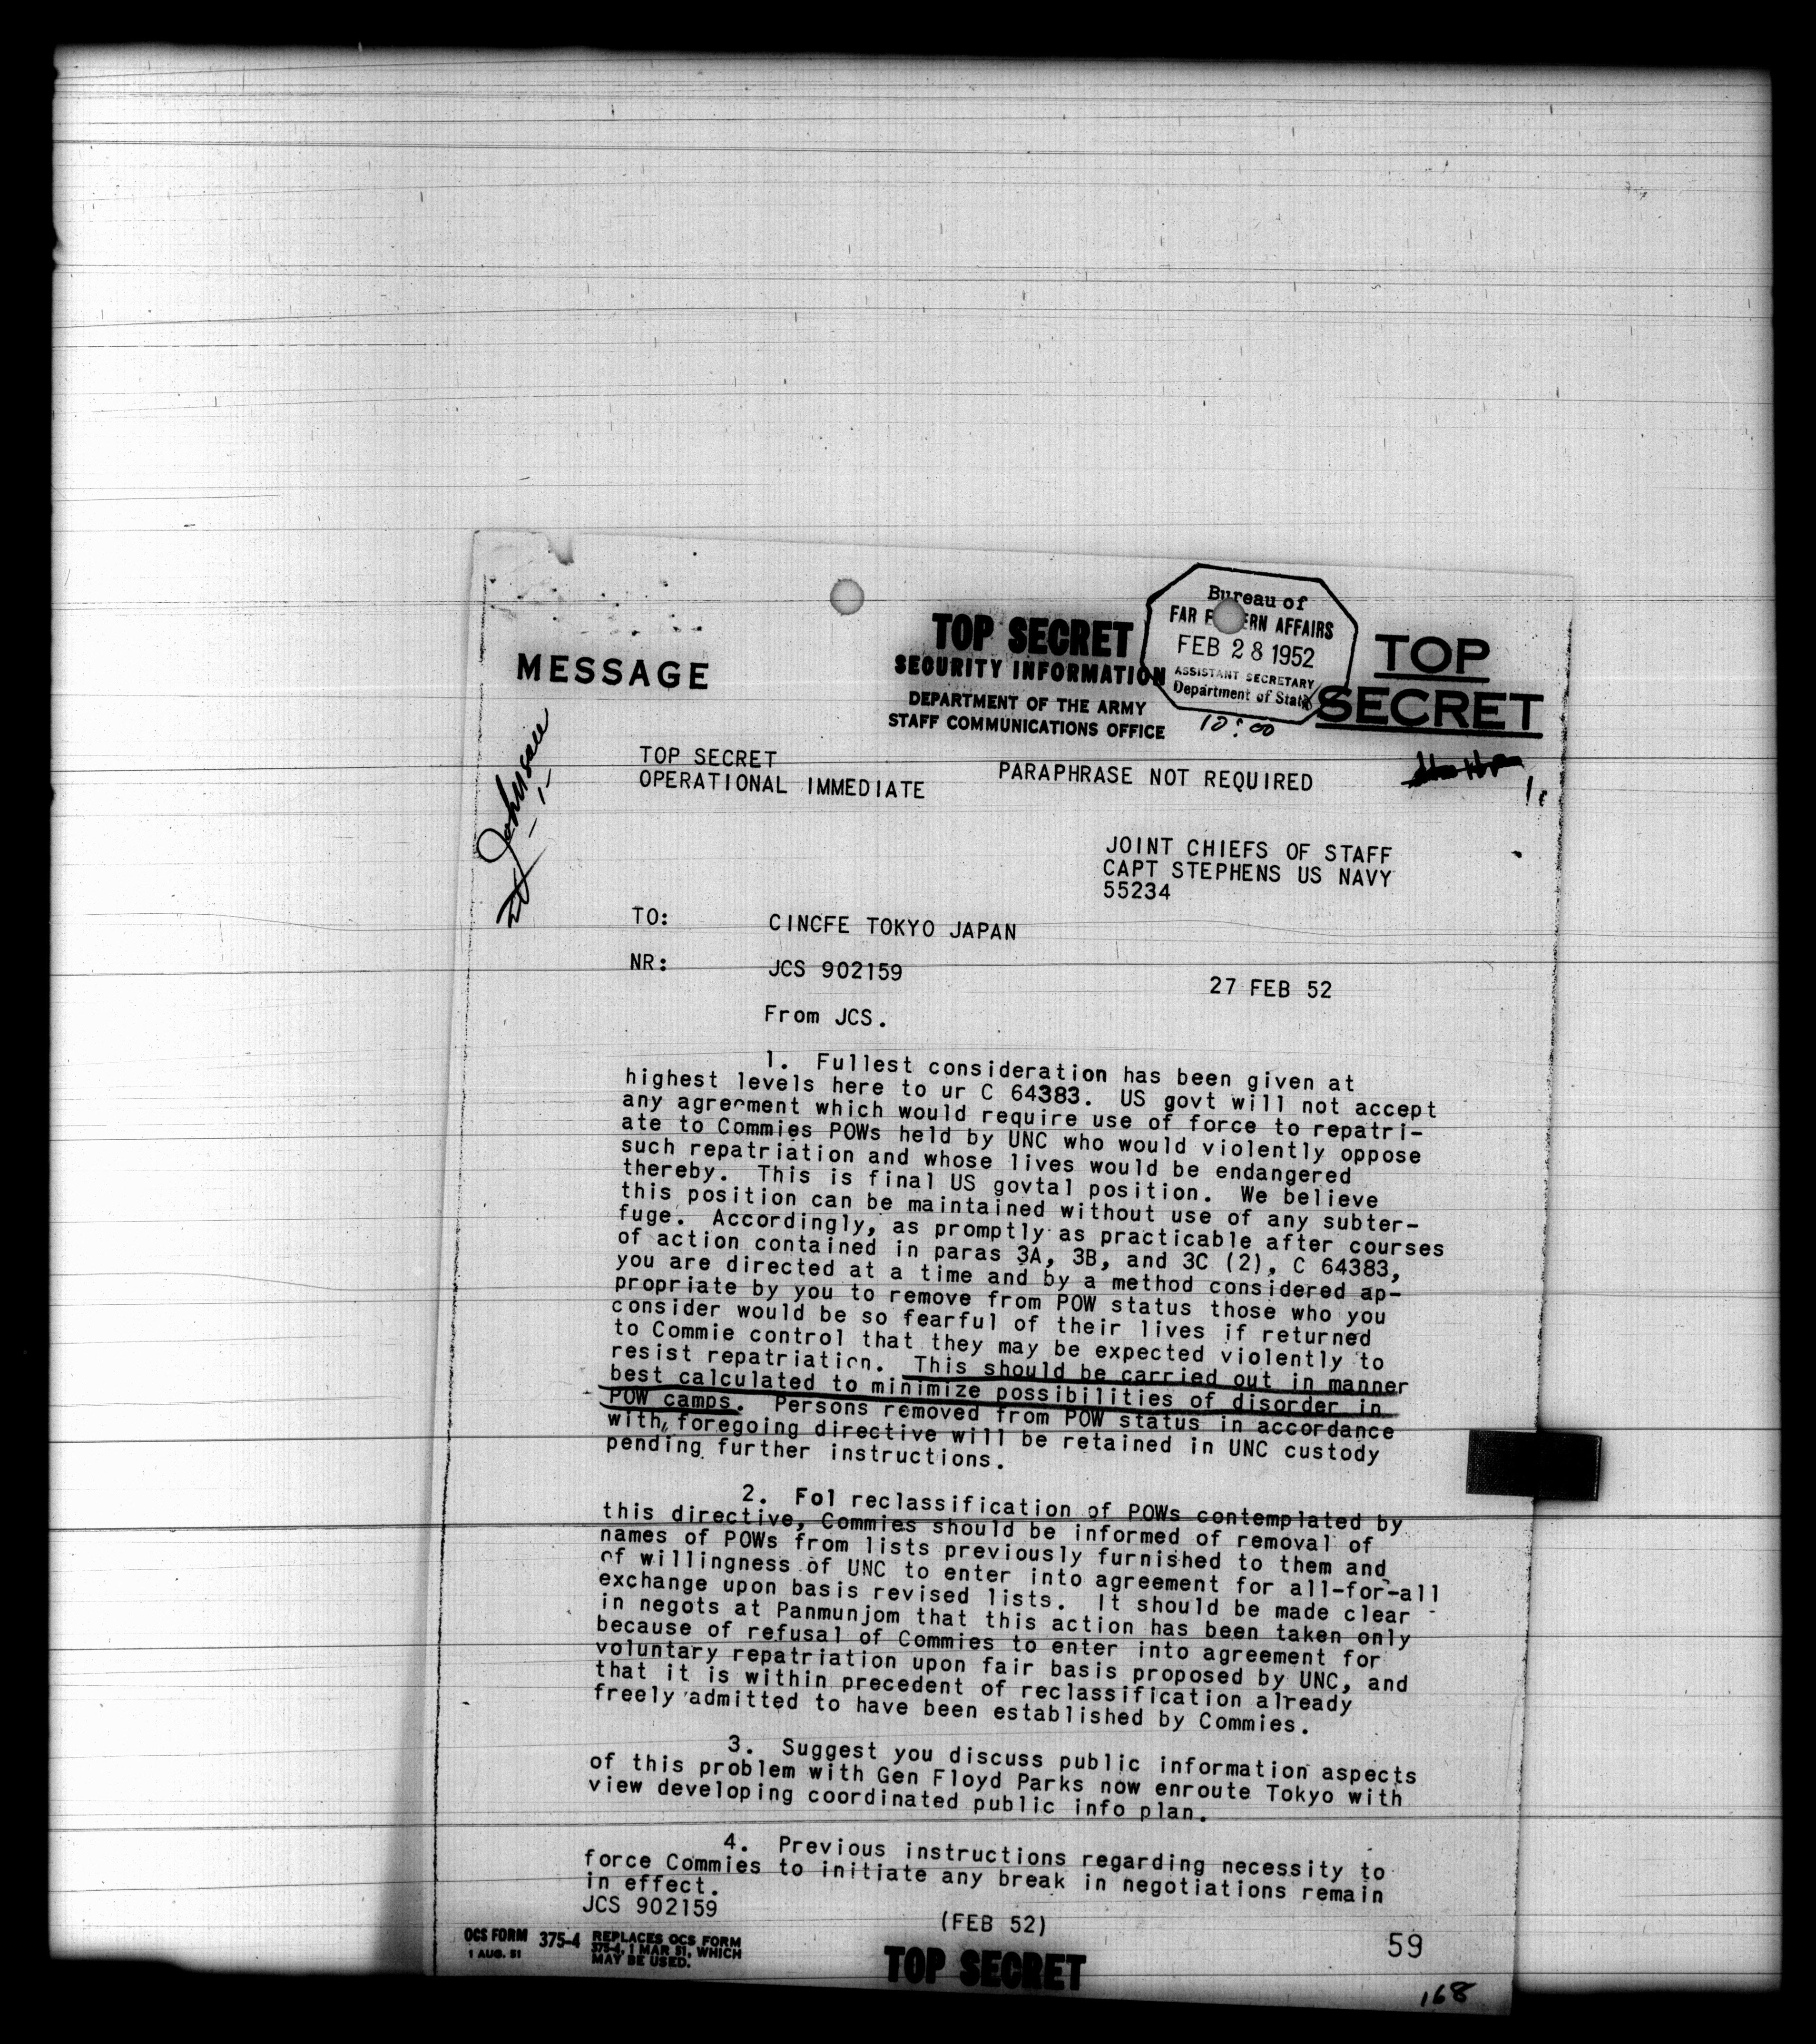 Bureau of
FAR EASTERN AFFAIRS
FEB 28 1952
ASSISTANT SECRETARY
Department of State
TOP SECRET
SECURITY INFORMATION
DEPARTMENT OF THE ARMY
STAFF COMMUNICATIONS OFFICE
TOP
SECRET
MESSAGE
10:00
Johnson
TOP SECRET
OPERATIONAL IMMEDIATE
PARAPHRASE NOT REQUIRED
JOINT CHIEFS OF STAFF
CAPT STEPHENS US NAVY
55234
TO: CINCFE TOKYO JAPAN
NR: JCS 902159
27 FEB 52
From JCS.
1. Fullest consideration has been given at
highest levels here to ur C 64383. US govt will not accept
any agreement which would require use of force to repatri-
ate to Commies POWs held by UNC who would violently oppose
such repatriation and whose lives would be endangered
thereby. This is final US govtal position. We believe
this position can be maintained without use of any subter-
fuge. Accordingly, as promptly as practicable after courses
of action contained in paras 3A, 3B, and 3C (2), C 64383,
you are directed at a time and by a method considered ap-
propriate by you to remove from POW status those who you
consider would be so fearful of their lives if returned
to Commie control that they may be expected violently to
resist repatriation. This should be carried out in manner
best calculated to minimize possibilities of disorder in
POW camps. Persons removed from POW status in accordance
with foregoing directive will be retained in UNC custody
pending further instructions.
2. Fol reclassification of POWs contemplated by
this directive, Commies should be informed of removal of
names of POWs from lists previously furnished to them and
of willingness of UNC to enter into agreement for all-for-all
exchange upon basis revised lists. It should be made clear
in negots at Panmunjom that this action has been taken only
because of refusal of Commies to enter into agreement for
voluntary repatriation upon fair basis proposed by UNC, and
that it is within precedent of reclassification already
freely admitted to have been established by Commies.
3. Suggest you discuss public information aspects
of this problem with Gen Floyd Parks now enroute Tokyo with
view developing coordinated public info plan.
4. Previous instructions regarding necessity to
force Commies to initiate any break in negotiations remain
in effect.
JCS 902159
(FEB 52)
59
OCS FORM 375-4
1 AUG. 51
REPLACES OCS FORM
375-4, 1 MAR 51, WHICH
MAY BE USED.
TOP SECRET
168